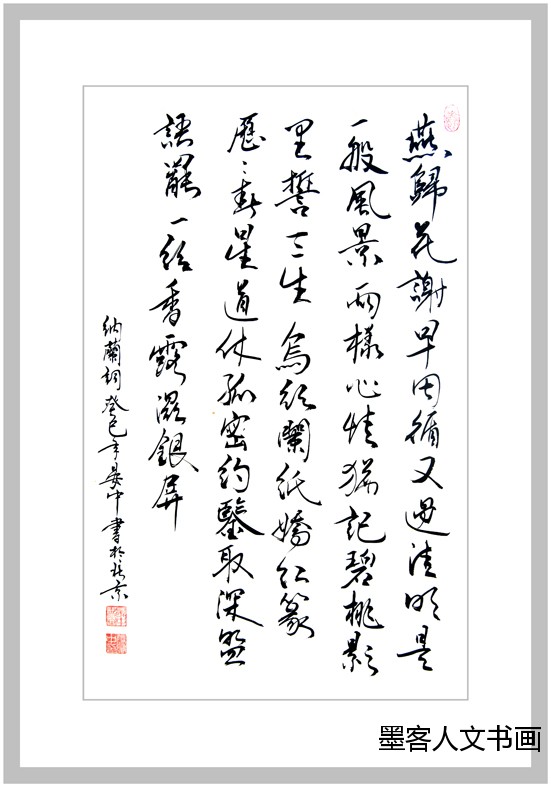 燕歸花謝早因循又過清明是
一般風景兩樣心情猶記碧桃影
里誓三生烏絲闌紙嬌紅篆
歷〻春星道休孤密約鑒取深盟
語罷一絲香露濕銀屏
納蘭詞癸巳年晏中書於北京
墨客人文书画